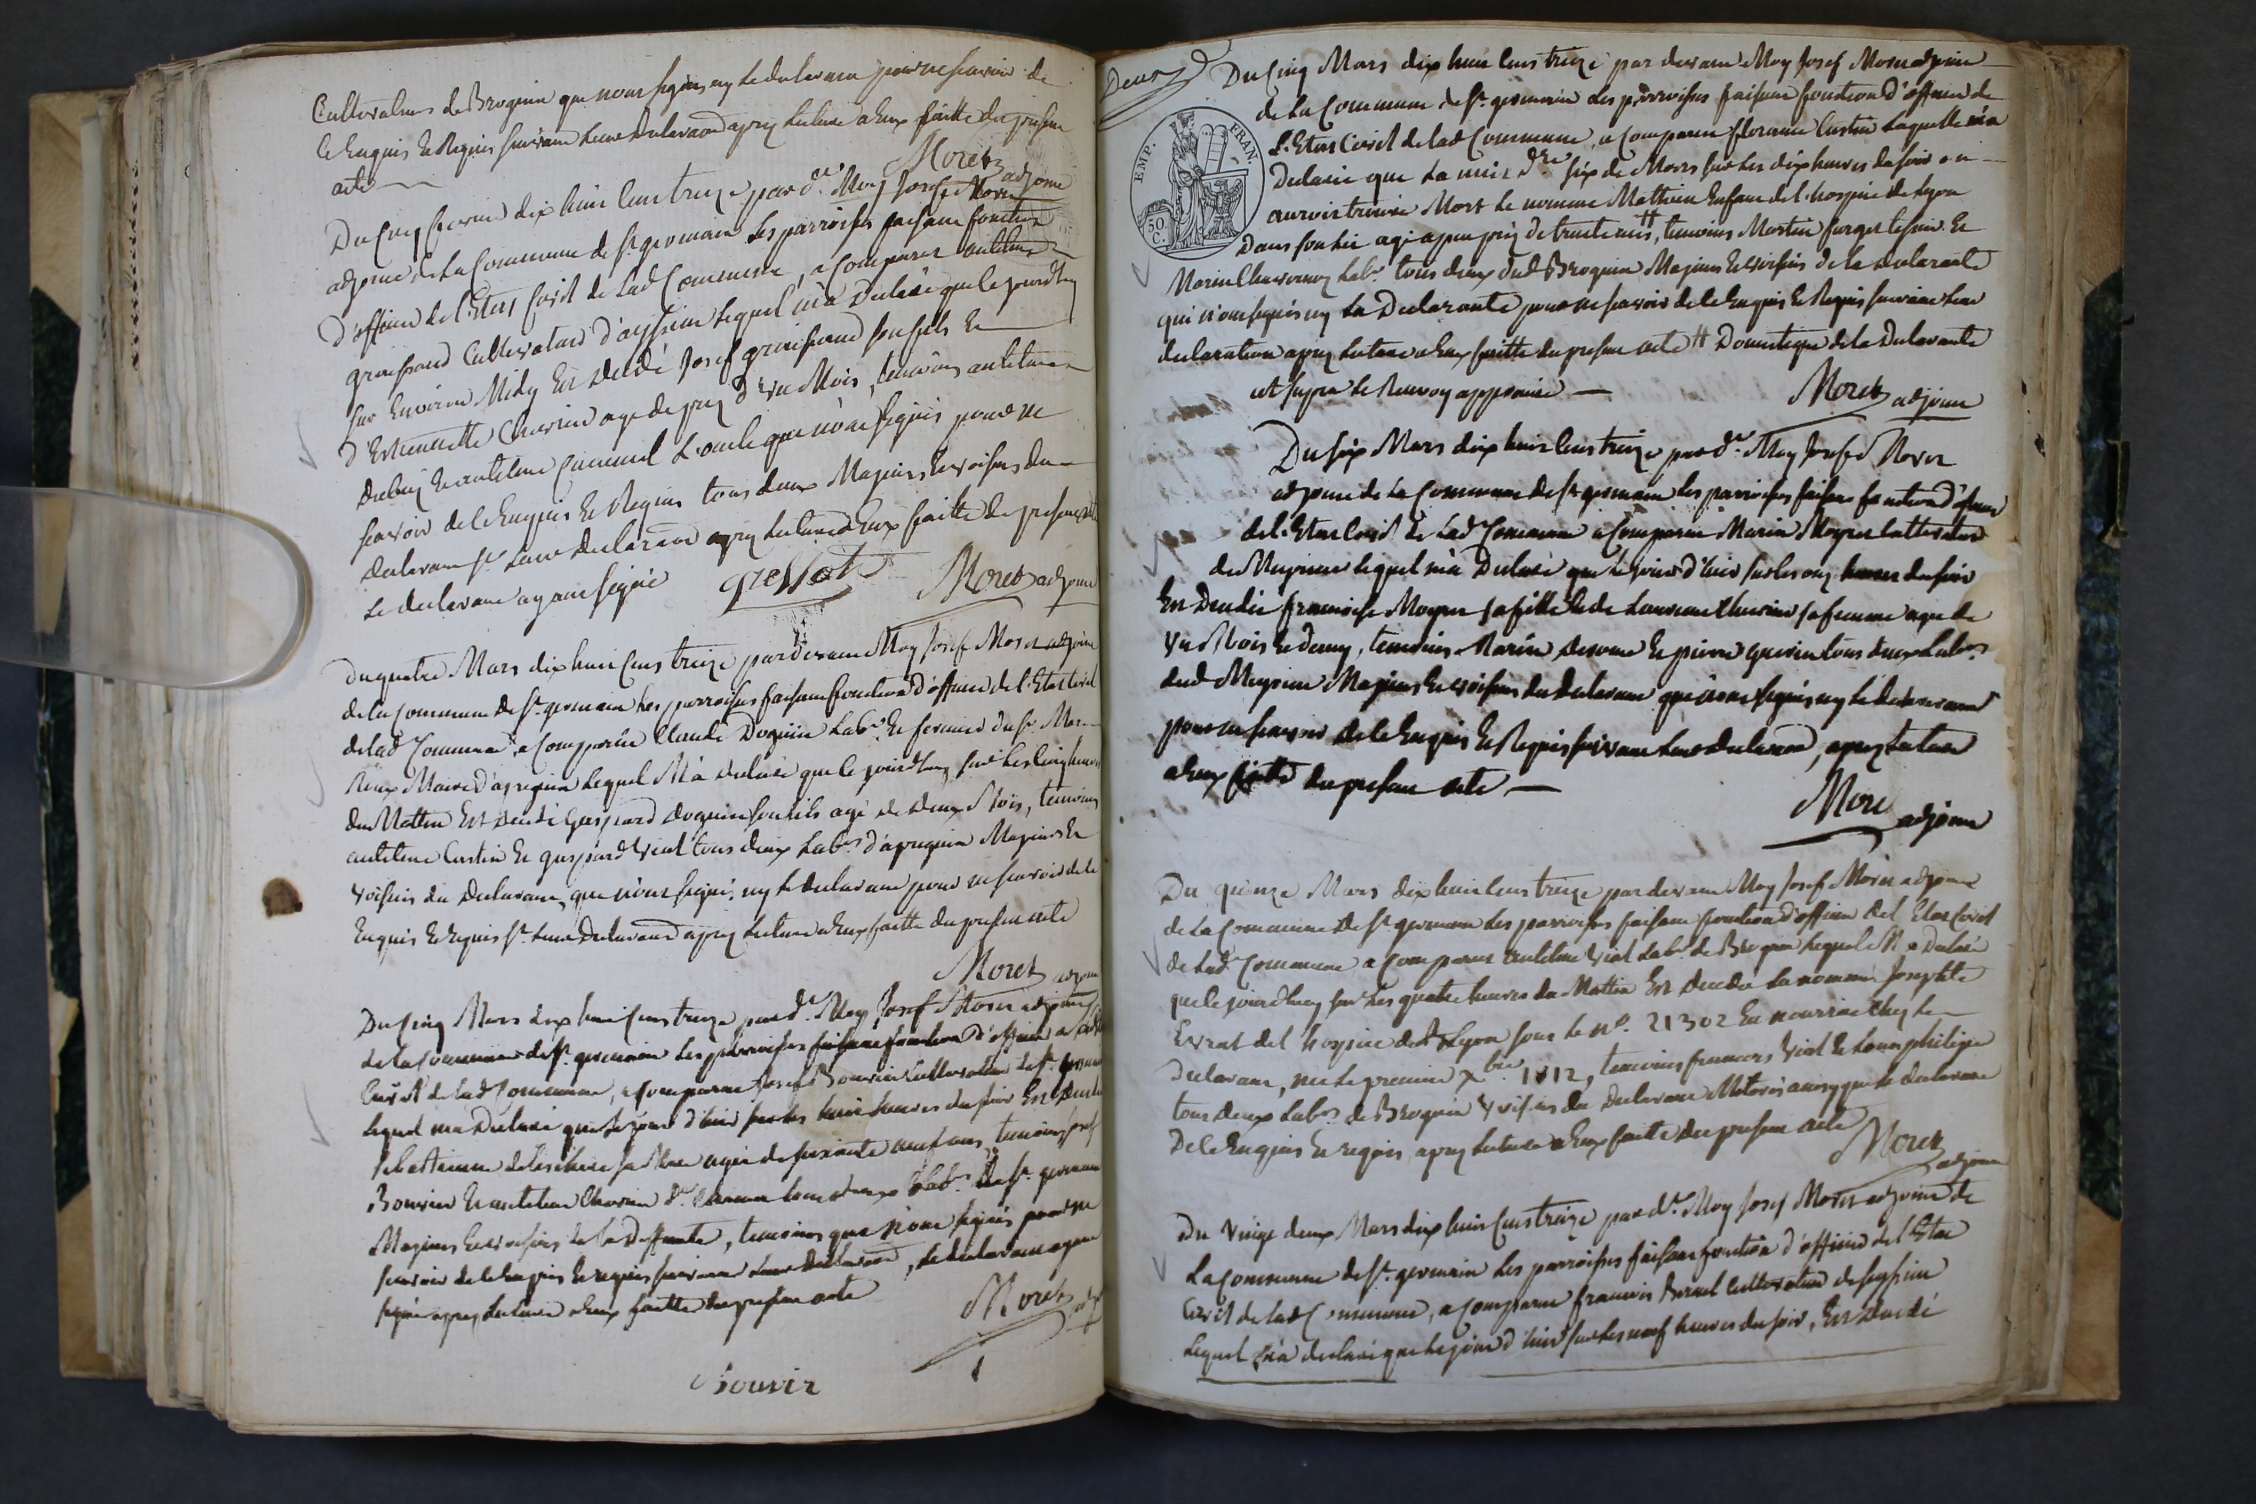 Cultivateurs de Brognin que nont signés ny le declarant pour ne scavoir de
ce Enquis Et Requis suivant leur declaraon aprez lecture a Eux faitte du present
acte
Moret adjoint
Du Cinq fevrier dix huit Cens treize par dt Moy Josef Moret
adjoint de la Commune de St germain les parroisses faisant fonction
d'officier de l'Etat Civil de lad Commune, a Comparu antelme
Cultivateur d'ayssieu lequel m'a Declaré que le jourdhuy
sur Environ Midy Est decedé Josef son fils Et
d'Estiennette Chevrier age de prez d'un Mois, temoins antelme
Et antelme l'oncle que n'ont signés pour ne
scavoir de ce Enquis Et Requis tous deux Majeurs Et voisins du
declarant St leur declaraon aprez lecture a Eux faitte du present acte
le declarant ayant signé
Moret adjoint
Du quatre Mars dix huit Cens treize par devant Moy Josef Moret adjoint
de la Commune de St germain les parroisses faisant fonction d'officier de l'Etat Civil
de lad Commune, a Comparu Claude Doguin Labr Et fermier du Sr
Maire d'apregnin lequel M'a declaré que le jourdhuy sur les Cinq heures
du Mattin Est decedé Gaspard Doguin son fils agé de deux Mois, temoins
antelme Custin Et gaspard Viol tous deux Labrs d'apregnin Majeurs Et
voisins du Declarant, que n'ont signé, ny le declarant pour ne scavoir de ce
Enquis Et Requis St leur Declaraon aprez lecture a Eux faitte du present acte
Moret adjoint
Du Cinq Mars dix huit Cens treize par dt Moy Josef Moret adjoint
de la Commune de St germain les parroisses faisant fonction d'officier
Civil de lad Commune, a Comparu Josef Bouvier Cultivateur de St germain
lequel m'a Declaré que le jour d'hier sur les huit heures du soir Est decedé
sa Mere agée de soixante neuf ans, temoins Josef
Bouvier Et antelme Chevrier tous deux Labrs de St germain
Majeurs Et voisins de la Deffunte, temoins que n'ont signés pour ne
scavoir de ce Enquis Et requis suivant leur Declaraon, le declarant ayant
signé aprez lecture a Eux faitte du present acte
Moret adjt
Bouvir
Deux
EMP. FRAN.
50 C.
Du Cinq Mars dix huit Cens treize par devant Moy Josef Moret adjoint
de la Commune de St germain les parroisses faisant fonction d'officier de
l'Etat Civil de lad Commune, a Comparu florence Custin laquelle m'a
Declaré que la nuit six de Mars sur les dix heures du soir on
auroit trouvé Mort le nommé Mathieu Enfant de l'hospice de Lyon
Dans son lit agé a peu prez de trente ans, # temoins Martin Et
Marin Labr tous deux dud Brognin Majeurs Et voisins de la declarante
qui n'ont signés ny la Declarante pour ne scavoir de ce Enquis Et Requis suivant leur
declaration aprez lecture a Eux faitte du present acte # Domestique de la Declarante
ut supra le Renvoy approuvé
Moret adjoint
Du six Mars dix huit Cens treize par dt Moy Josef Moret
adjoint de la Commune de St germain les parroisses faisant fonction d'officier
de l'Etat Civil de lad Commune a Comparu Marin Moyret Cultivateur
de Meyrieu lequel m'a Declaré que le jour d'hier sur les onze heures du soir
Est Decedée francoise Moyret sa fille Et de Laurence Chevrier sa femme agée de
Un Mois Et demy, temoins Marin Et pierre guerin tous deux Labrs
dud Meyrieu Majeurs Et voisins du declarant que n'ont signés ny le declarant
pour ne scavoir de ce Enquis Et Requis suivant leur declaraon, aprez lecture
a Eux faitte du present acte
Moret adjoint
Du quinze Mars dix huit Cens treize par devant Moy Josef Moret adjoint
de la Commune de St germain les parroisses faisant fonction d'officier de l'Etat Civil
de lad Commune a Comparu antelme Viol Labr de Brognin lequel M'a Declaré
que le jourdhuy sur les quatre heures du Mattin Est decedée la nommée Josephte
Evrat de l'hospice de Lyon sous le no. 21302 En nourrice chez le
declarant, née le premier Xbre 1812, temoins francois Viol Et Louis philippe
tous deux Labrs de Brognin Voisins du Declarant aussy que le declarant
De ce Enquis Et requis aprez lecture a Eux faitte du present acte
Moret adjoint
Du vingt deux Mars dix huit Cens treize par dt Moy Josef Moret adjoint de
la Commune de St germain les parroisses faisant fonction d'officier de l'Etat
Civil de lad Commune, a Comparu francois Cultivateur
lequel m'a declaré que le jour d'hier sur les neuf heures du soir, Est Decedé